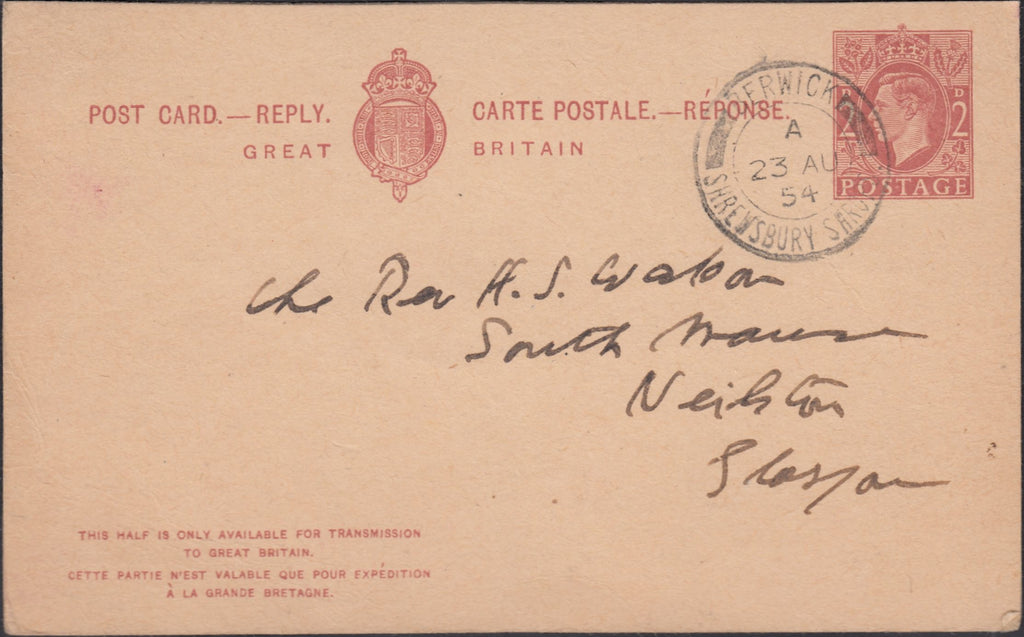 POST CARD.—REPLY. CARTE POSTALE.—RÉPONSE.
GREAT BRITAIN
BERWICK
A
23 AU
54
SHREWSBURY SHROP
D 2 D 2
POSTAGE
The Rev H. S. Watson
South Manse
Neilston
Glasgow
THIS HALF IS ONLY AVAILABLE FOR TRANSMISSION
TO GREAT BRITAIN.
CETTE PARTIE N'EST VALABLE QUE POUR EXPÉDITION
À LA GRANDE BRETAGNE.